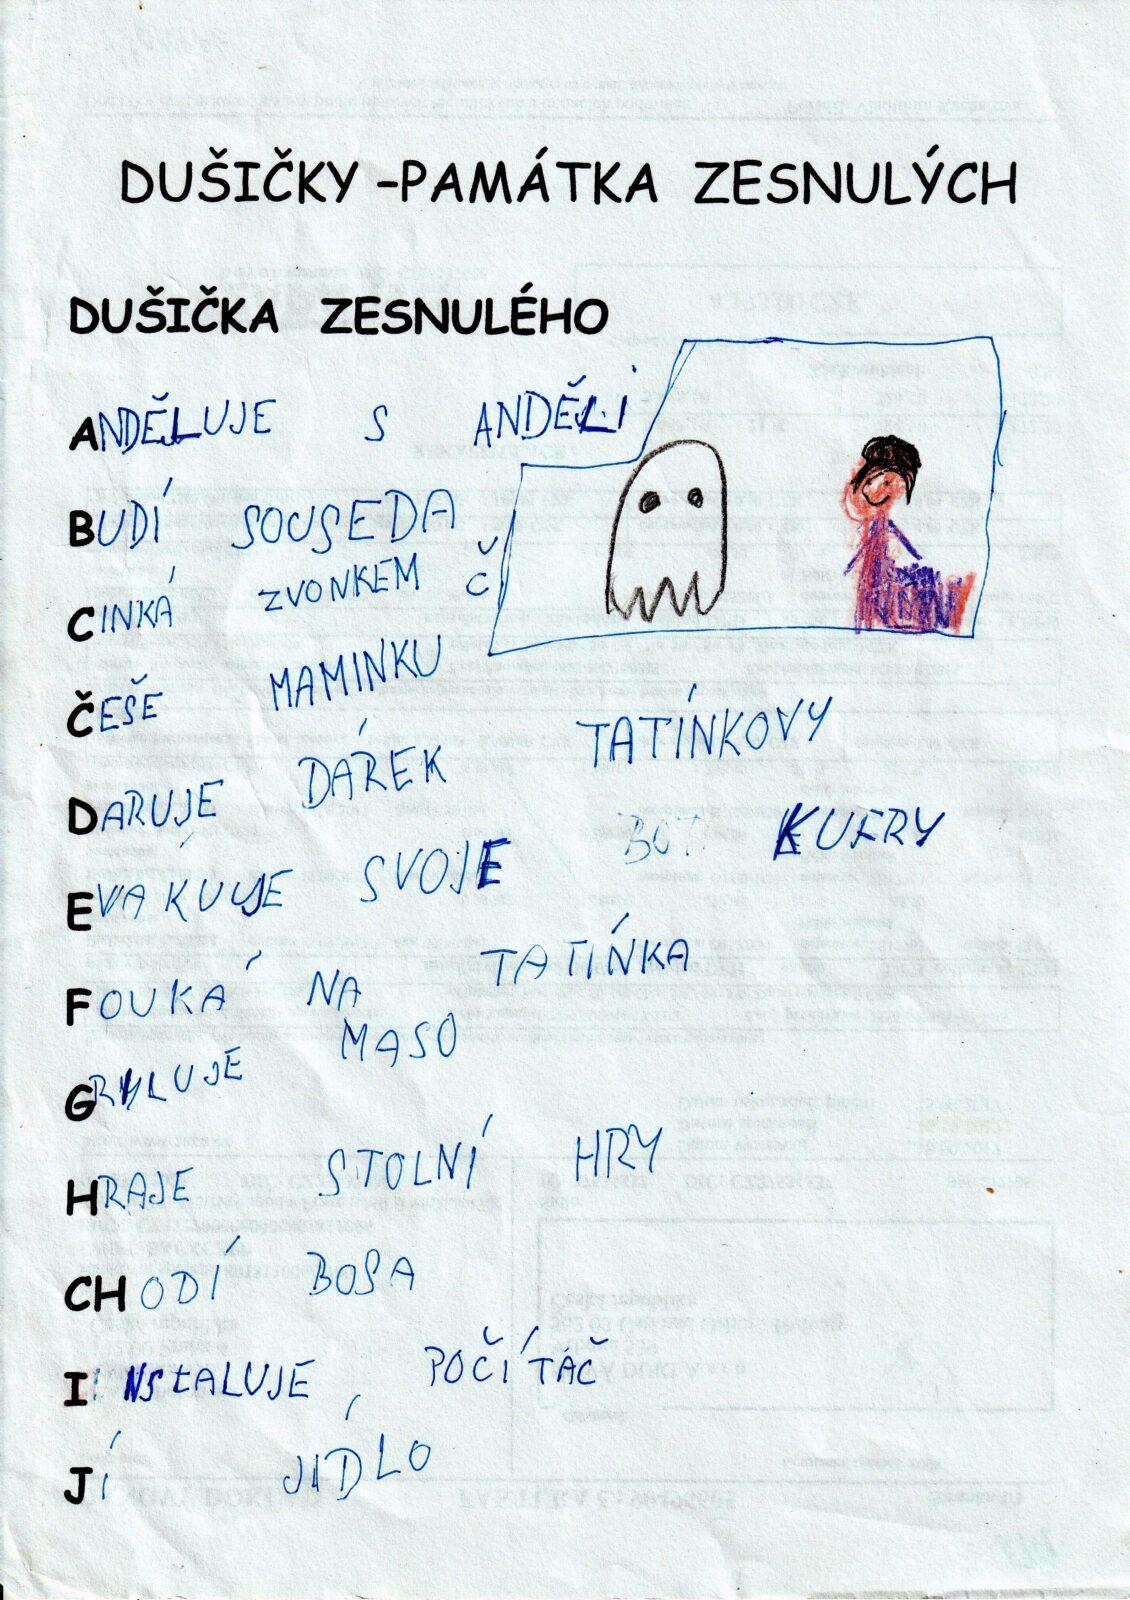 DUŠIČKY –PAMÁTKA ZESNULÝCH
DUŠIČKA ZESNULÉHO
ANDĚLUJE S ANDĚLI
BUDÍ SOUSEDA
CINKÁ ZVONKEM Č
ČEŠE MAMINKU
DARUJE DÁREK TATÍNKOVY
EVAKUUJE SVOJE KUFRY
FOUKÁ NA TATÍNKA
GRYLUJE MASO
HRAJE STOLNÍ HRY
CHODÍ BOSA
INSTALUJE POČÍTAČ
JÍ JÍDLO